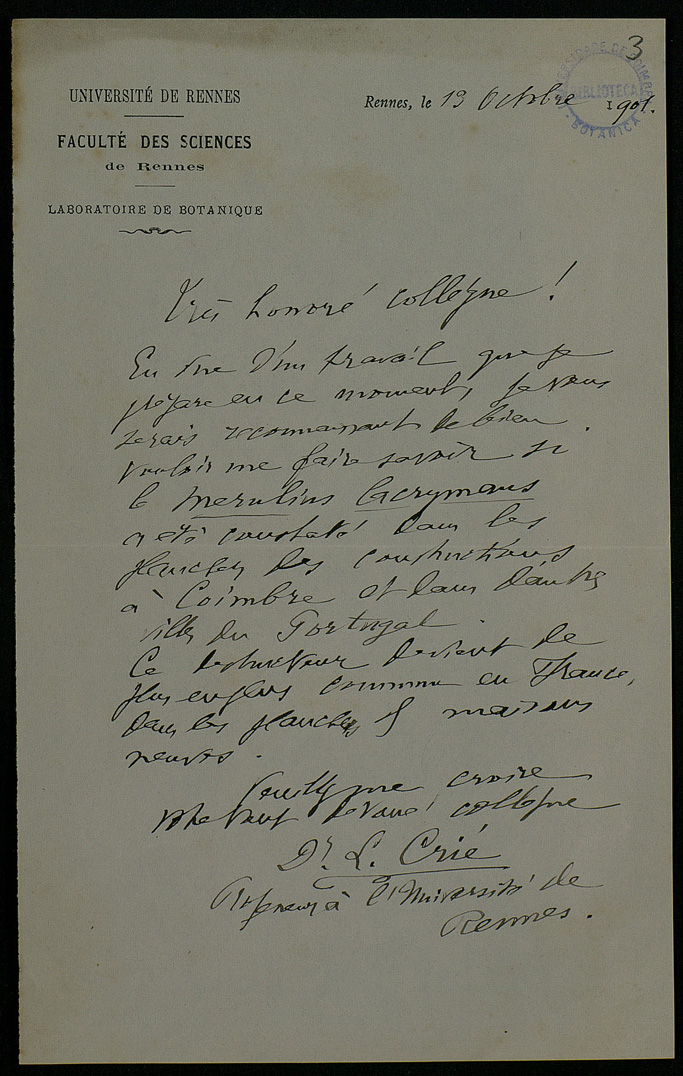 3
UNIVERSIDADE DE COIMBRA
BIBLIOTECA
BOTANICA
UNIVERSITÉ DE RENNES
FACULTÉ DES SCIENCES
de Rennes
LABORATOIRE DE BOTANIQUE
Rennes, le 13 Octobre 1901.
Très honoré collègue !
En vue d'un travail que je
prépare en ce moment, je vous
serais reconnaissant de bien
vouloir me faire savoir si
le Merulius lacrymans
a été constaté dans les
planches des constructions
à Coimbre et dans d'autres
villes du Portugal.
Ce destructeur devient de
plus en plus commun en France,
dans les planchers de maisons
neuves.
Veuillez me croire
votre tout dévoué collègue
Dr. L. Crié
Professeur à l'Université de
Rennes.